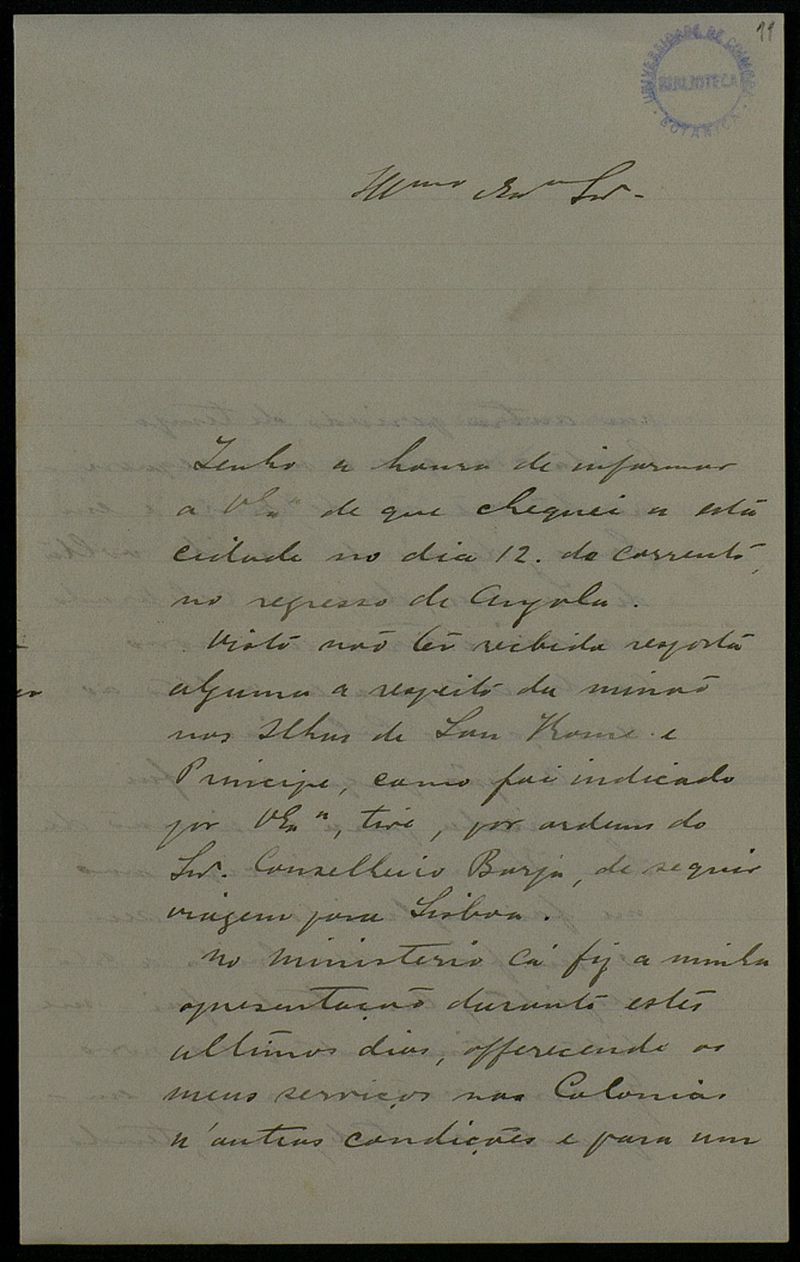 11
UNIVERSIDADE DE COIMBRA
BIBLIOTECA
BOTANICA
Illmo Exmo Snr.
Tenho a honra de informar
a VExa de que cheguei a esta
cidade no dia 12. do corrente,
no regresso de Angola.
Visto não ter recebido resposta
alguma a respeito da missão
nas Ilhas de San Thomé e
Principe, como foi indicado
por VExa, tive, por ordem do
Snr. Conselheiro Borja, de seguir
viagem para Lisboa.
No Ministerio cá fiz a minha
apresentação durante estes
ultimos dias, offerecendo os
meus serviços nas Colonias
n'outras condições e para um